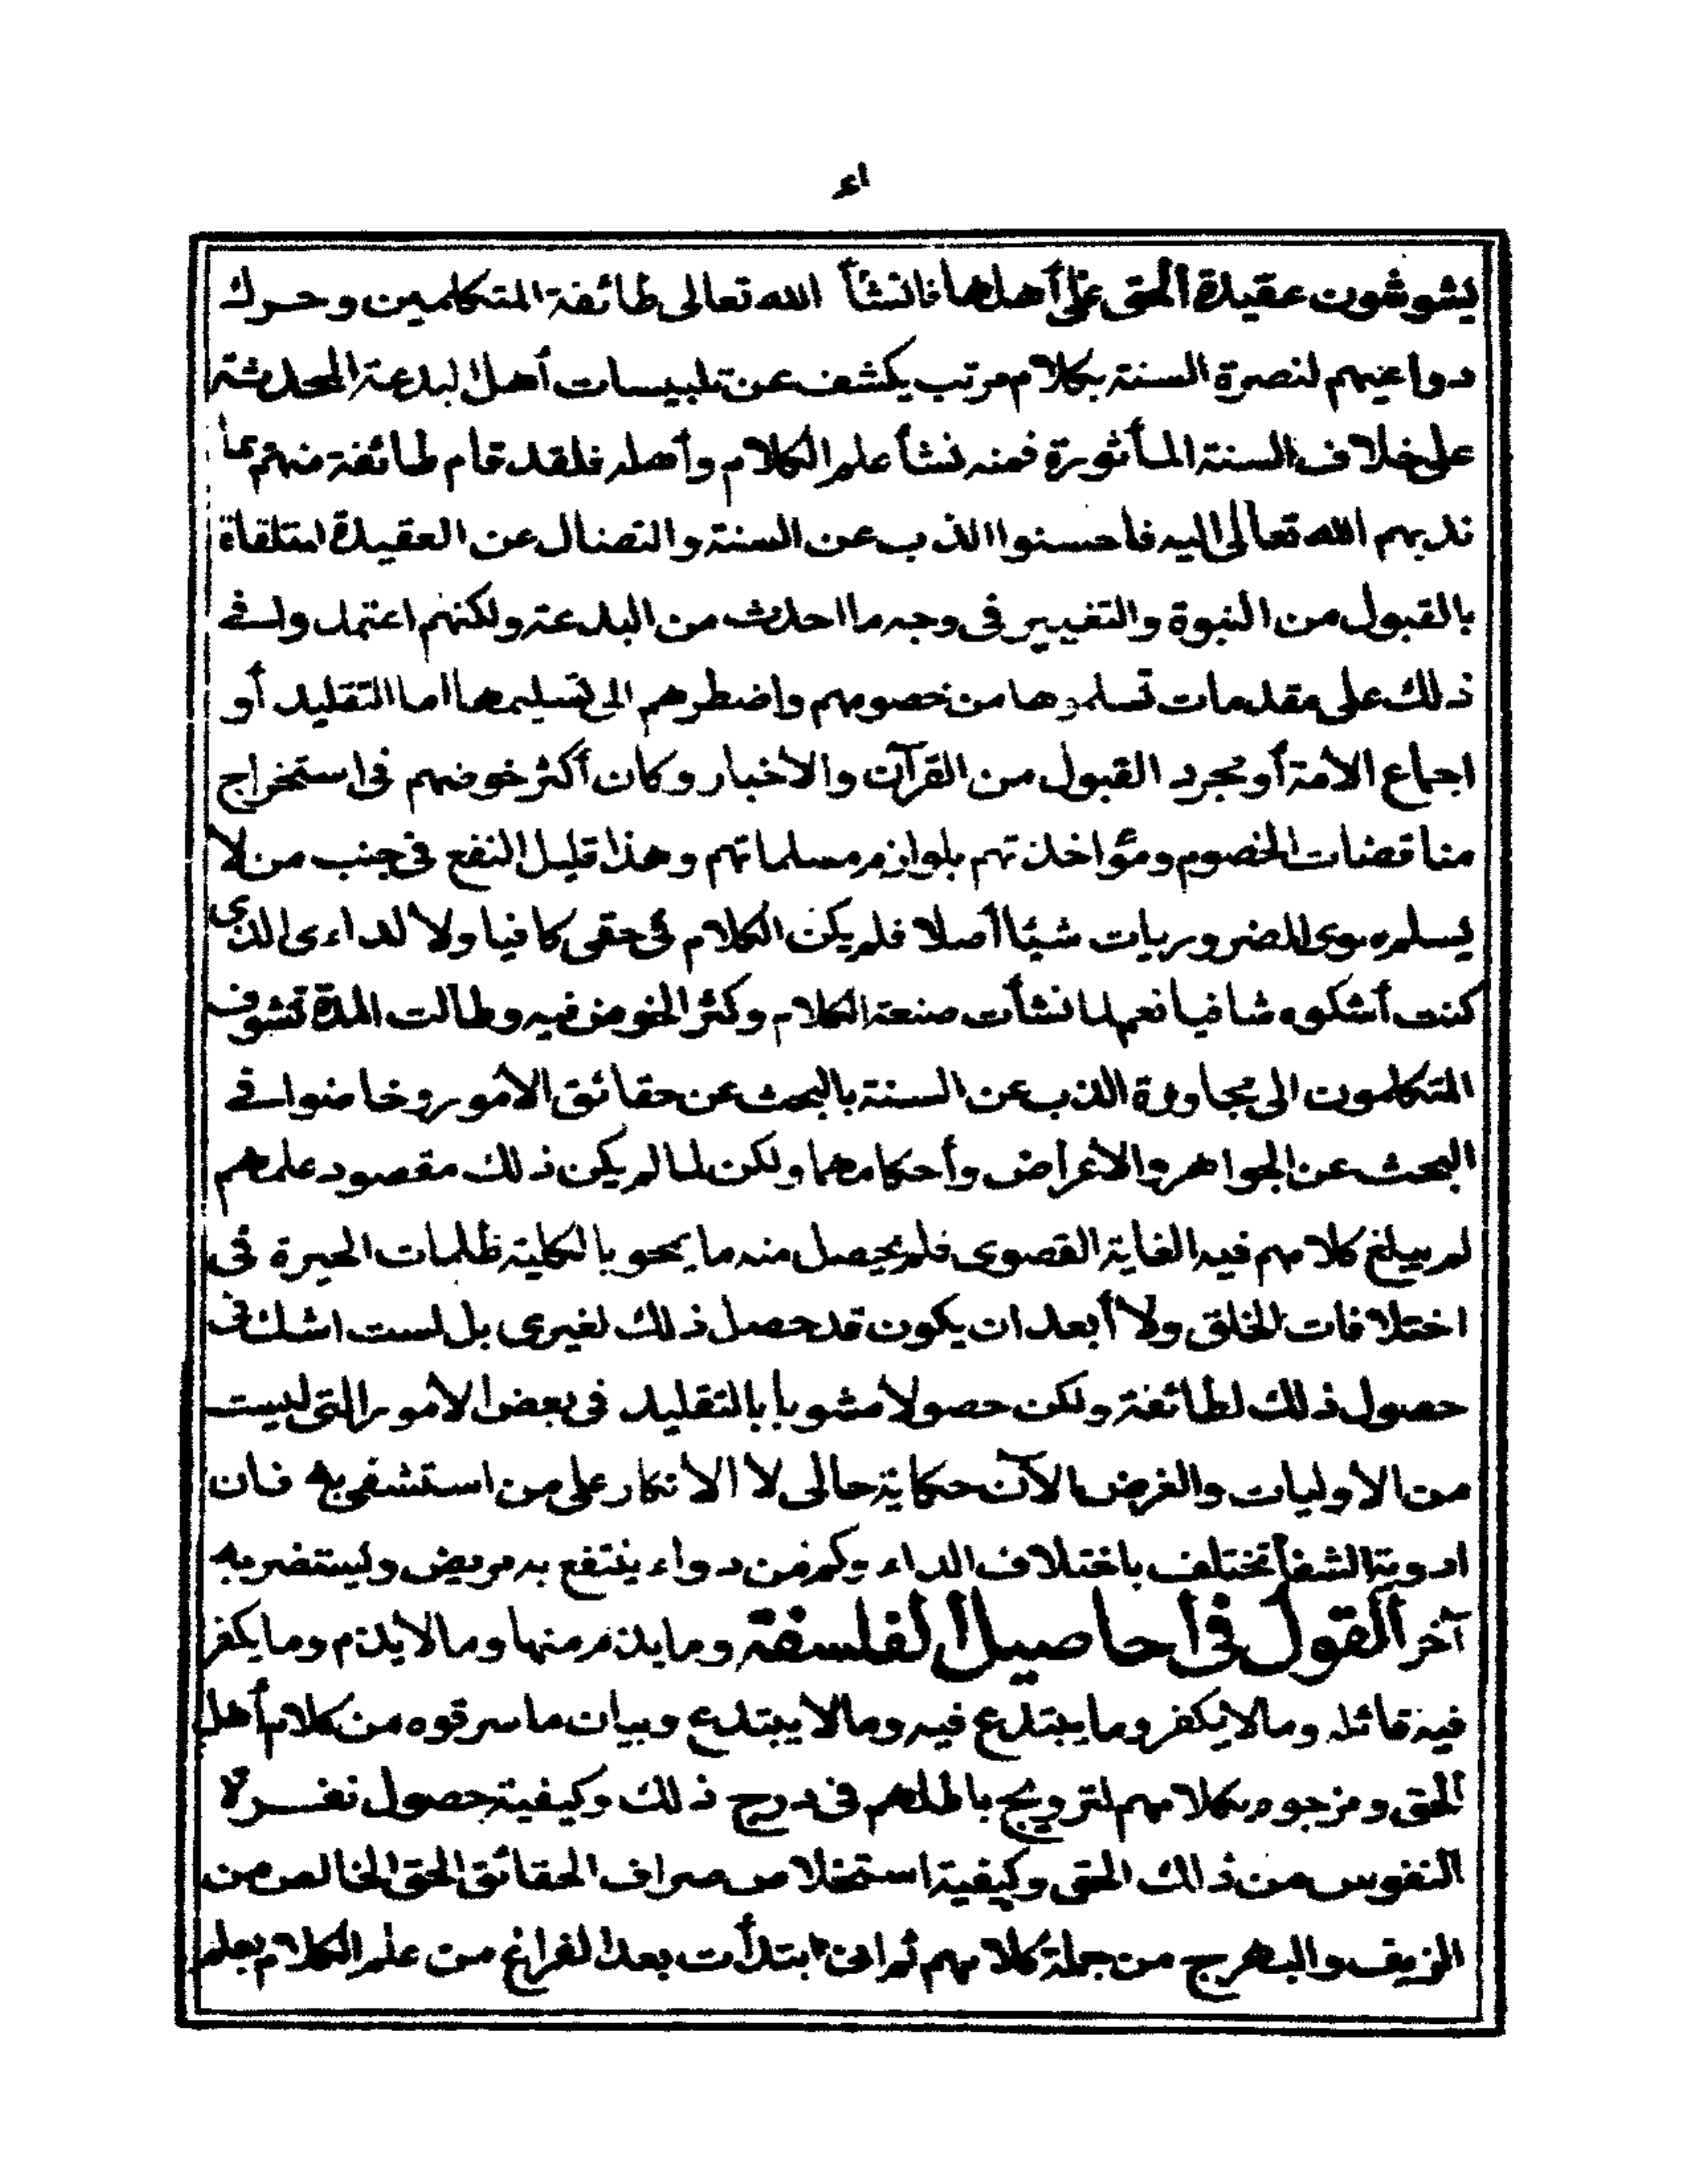 اء
يشوشون عقيدة الحق على أهلها فانشأ الله تعالى طائفة المتكلمين وحرك
دواعيهم لنصرة السنة بكلام مرتب يكشف عن تلبيسات أهل البدعة المحدثة
على خلاف السنة المأثورة فمنه نشأ علم الكلام وأهله فلقد قام طائفة منهم بما
ندبهم الله تعالى اليه فأحسنوا الذب عن السنة والنضال عن العقيدة المتلقاة
بالقبول من النبوة والتغيير فى وجه ما احدث من البدعة ولكنهم اعتمدوا فى
ذلك على مقدمات تسلموها من خصومهم واضطرهم الى تسليمها اما التقليد أو
اجماع الأمة أو مجرد القبول من القرآن والاخبار وكان أكثر خوضهم فى استخراج
مناقضات الخصوم ومؤاخذتهم بلوازم مسلماتهم وهذا قليل النفع فى جنب من لا
يسلم سوى الضروريات شيئا أصلا فلم يكن الكلام فى حقى كافيا ولا لداءى الذى
كنت أشكوه شافيا نعم لما نشأت صنعة الكلام وكثر الخوض فيه وطالت المدة تشوف
المتكلمون الى مجاوزة الذب عن السنة بالبحث عن حقائق الأمور وخاضوا فى
البحث عن الجواهر والاعراض وأحكامها ولكن لما لم يكن ذلك مقصود علمهم
لم يبلغ كلامهم فيه الغاية القصوى فلم يحصل منه ما يمحو بالكلية ظلمات الحيرة فى
اختلافات الخلق ولا أبعد ان يكون قد حصل ذلك لغيرى بل لست اشك فى
حصول ذلك لطائفة ولكن حصولا مشوبا بالتقليد فى بعض الأمور التى ليست
من الأوليات والغرض الآن حكاية حالى لا الانكار على من استشفى به فان
ادوية الشفأ تختلف باختلاف الداء وكم من دواء ينتفع به مريض ويستضر به
آخر القول فى احاصيل الفلسفة وما يذم منها وما لا يذم وما يكفر
فيه قائله وما لا يكفر وما يبتدع فيه وما لا يبتدع وبيان ما سرقوه من كلام أهل
الحق ومزجوه بكلامهم لترويج باطلهم فى درج ذلك وكيفية حصول نفرة
النفوس من ذلك الحق وكيفية استخلاص صراف الحقائق الحق الخالص من
الزيف والبهرج من جملة كلامهم ثم انى ابتدأت بعد الفراغ من علم الكلام بعلم